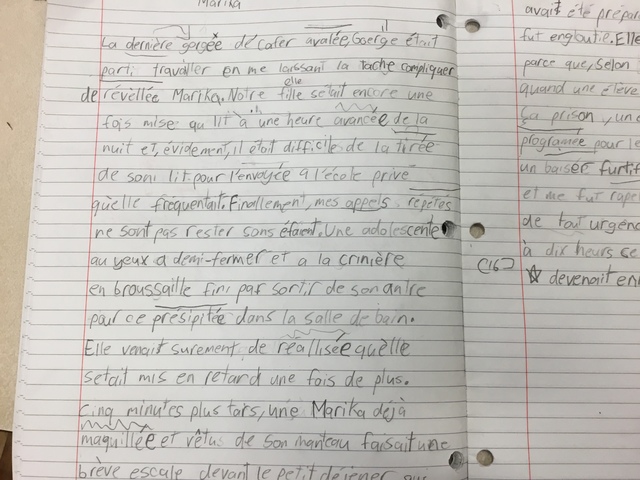 Marika
La dernière gorgée de cafer avalée, Goerge était
parti travailler en me laissant la tâche compliquer
elle
de révéllée Marika. Notre fille setait encore une
fois mise qu lit à une heure avancée de la
nuit et, évidement, il était difficile de la tirée
de soni lit pour l'envoyée à l'école privé
qu'elle fréquentait. Finallement, mes appels répétés
ne sont pas rester sans éfaient. Une adolescente
au yeux a demi-fermer et a la crinière
en broussaille fini par sortir de son antre
pour ce présipitée dans la salle de bain.
Elle venait surement de réallisée qu'elle
setait mis en retard une fois de plus.
Cinq minutes plus tars, une Marika déjà
maquillée et vêtus de son manteau faisait une
brève escale devant le petit déjener
avait été prépar
fut engloutie. Elle
parce que, selon
quand une élève
Ça prison, un
programée pour le
un baiser furtif
et me fut rape
de tout urgenc
à dix heurs se
(16)
devenait en